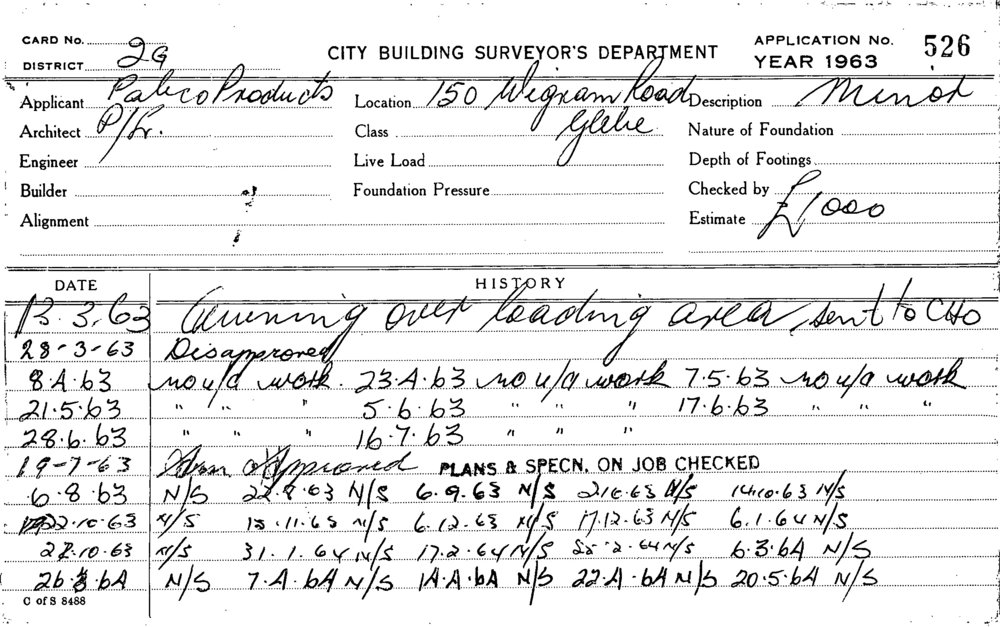 CARD No. 2G
DISTRICT
CITY BUILDING SURVEYOR'S DEPARTMENT
APPLICATION No. 526
YEAR 1963
Applicant Pabco Products Location 150 Wigram Road Description Minor
Architect P/L. Class Glebe Nature of Foundation
Engineer Live Load Depth of Footings
Builder Foundation Pressure Checked by
Alignment Estimate £1000
DATE HISTORY
13.3.63 Awning over loading area, sent to CHO
28-3-63 Disapproved
8.4.63 no u/a work. 23.4.63 no u/a work 7.5.63 no u/a work
21.5.63 " " " 5.6.63 " " " 17.6.63 " " "
28.6.63 " " " 16.7.63 " " "
19-7-63 Approved PLANS & SPECN. ON JOB CHECKED
6.8.63 N/S 22.8.63 N/S 6.9.63 N/S 2.10.63 N/S 14.10.63 N/S
22.10.63 N/S 18.11.63 N/S 6.12.63 N/S 17.12.63 N/S 6.1.64 N/S
10.63 N/S 31.1.64 N/S 17.2.64 N/S 2.64 N/S 6.3.64 N/S
26.3.64 N/S 7.4.64 N/S 14.4.64 N/S 22.4.64 N/S 20.5.64 N/S
C of S 8488